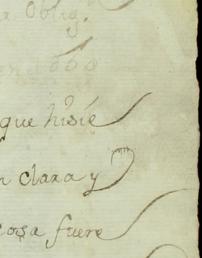 Oblig.
que hisie
n clara y
cosa fuere